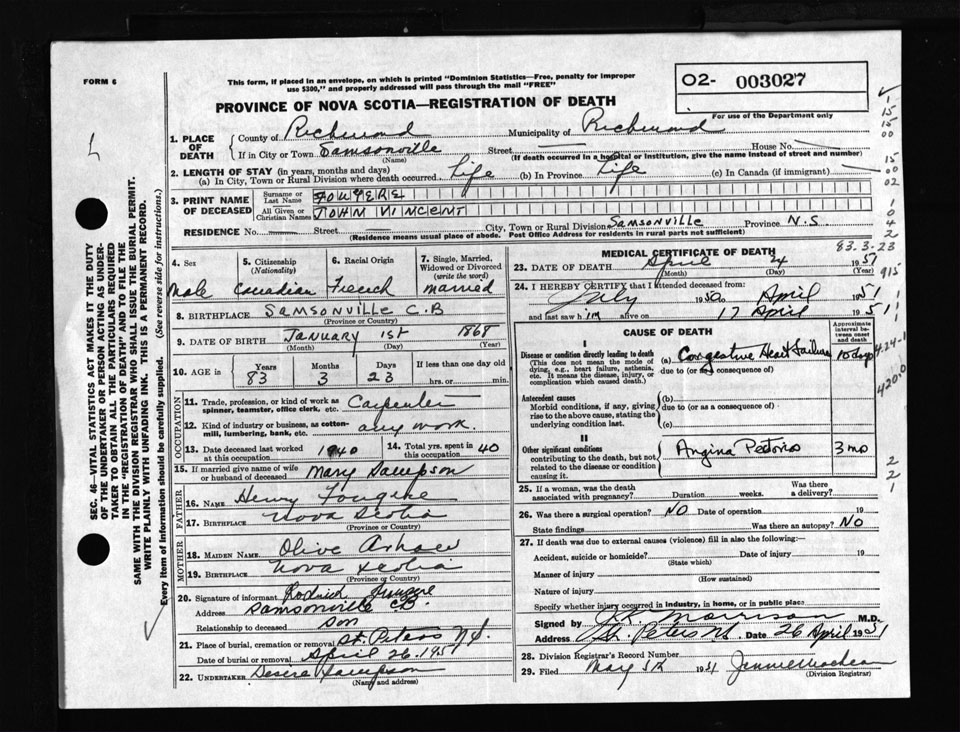 FORM 6
This form, if placed in an envelope, on which is printed "Dominion Statistics—Free, penalty for improper
use $300," and properly addressed will pass through the mail "FREE"
O2- 003027
For use of the Department only
PROVINCE OF NOVA SCOTIA—REGISTRATION OF DEATH
1. PLACE OF DEATH
County of Richmond Municipality of Richmond
If in City or Town Samsonville Street — House No.
(Name) (If death occurred in a hospital or institution, give the name instead of street and number)
2. LENGTH OF STAY (in years, months and days)
(a) In City, Town or Rural Division where death occurred Life (b) In Province Life (c) In Canada (if immigrant)
3. PRINT NAME OF DECEASED
Surname or Last Name FOUGERE
All Given or Christian Names JOHN VINCENT
RESIDENCE No. — Street — City, Town or Rural Division Samsonville Province N.S.
(Residence means usual place of abode. Post Office Address for residents in rural parts not sufficient)
4. Sex
Male
5. Citizenship (Nationality)
Canadian
6. Racial Origin
French
7. Single, Married, Widowed or Divorced (write the word)
married
8. BIRTHPLACE SAMSONVILLE C.B
(Province or Country)
9. DATE OF BIRTH January 1st 1868
(Month) (Day) (Year)
10. AGE in
Years Months Days If less than one day old
83 3 23 hrs. or min.
OCCUPATION
11. Trade, profession, or kind of work as spinner, teamster, office clerk, etc. Carpenter
12. Kind of industry or business, as cotton-mill, lumbering, bank, etc. any work.
13. Date deceased last worked at this occupation 1940
14. Total yrs. spent in this occupation 40
15. If married give name of wife or husband of deceased Mary Sampson
FATHER
16. NAME Henry Fougere
17. BIRTHPLACE Nova Scotia
(Province or Country)
MOTHER
18. MAIDEN NAME Olive
19. BIRTHPLACE Nova Scotia
(Province or Country)
20. Signature of informant Fougere
Address Samsonville CB.
Relationship to deceased son
21. Place of burial, cremation or removal St. Peters N.S.
Date of burial or removal April 26. 1951
22. UNDERTAKER Desire Sampson
(Name and address)
MEDICAL CERTIFICATE OF DEATH
83.3.23
23. DATE OF DEATH April 24 1951
(Month) (Day)
24. I HEREBY CERTIFY that I attended deceased from:
July 1950 to April 1951
and last saw him alive on 17 April 1951
CAUSE OF DEATH
Approximate interval between onset and death
I
Disease or condition directly leading to death (a) Congestive Heart Failure 10 days
(This does not mean the mode of dying, e.g., heart failure, asthenia, etc. It means the disease, injury, or complication which caused death.)
due to (or as consequence of)
Antecedent causes
Morbid conditions, if any, giving rise to the above cause, stating the underlying condition last.
(b)
due to (or as a consequence of)
(c)
II
Other significant conditions
contributing to the death, but not related to the disease or condition causing it.
Angina Pectoris 3 mo
25. If a woman, was the death associated with pregnancy? Duration weeks. Was there a delivery?
26. Was there a surgical operation? NO Date of operation 19
State findings Was there an autopsy? NO
27. If death was due to external causes (violence) fill in also the following:—
Accident, suicide or homicide? Date of injury 19
(State which)
Manner of injury
(How sustained)
Nature of injury
Specify whether injury occurred in industry, in home, or in public place
Signed by Morrison M.D.
Address St. Peters N.S. Date 26 April 1951
28. Division Registrar's Record Number
29. Filed May 5th 1951
(Division Registrar)
SEC. 46—VITAL STATISTICS ACT MAKES IT THE DUTY
OF THE UNDERTAKER OR PERSON ACTING AS UNDER-
TAKER TO OBTAIN ALL THE PARTICULARS REQUIRED
IN THE "REGISTRATION OF DEATH" AND TO FILE THE
SAME WITH THE DIVISION REGISTRAR WHO SHALL ISSUE THE BURIAL PERMIT.
WRITE PLAINLY WITH UNFADING INK. THIS IS A PERMANENT RECORD.
Every item of information should be carefully supplied. (See reverse side for instructions.)